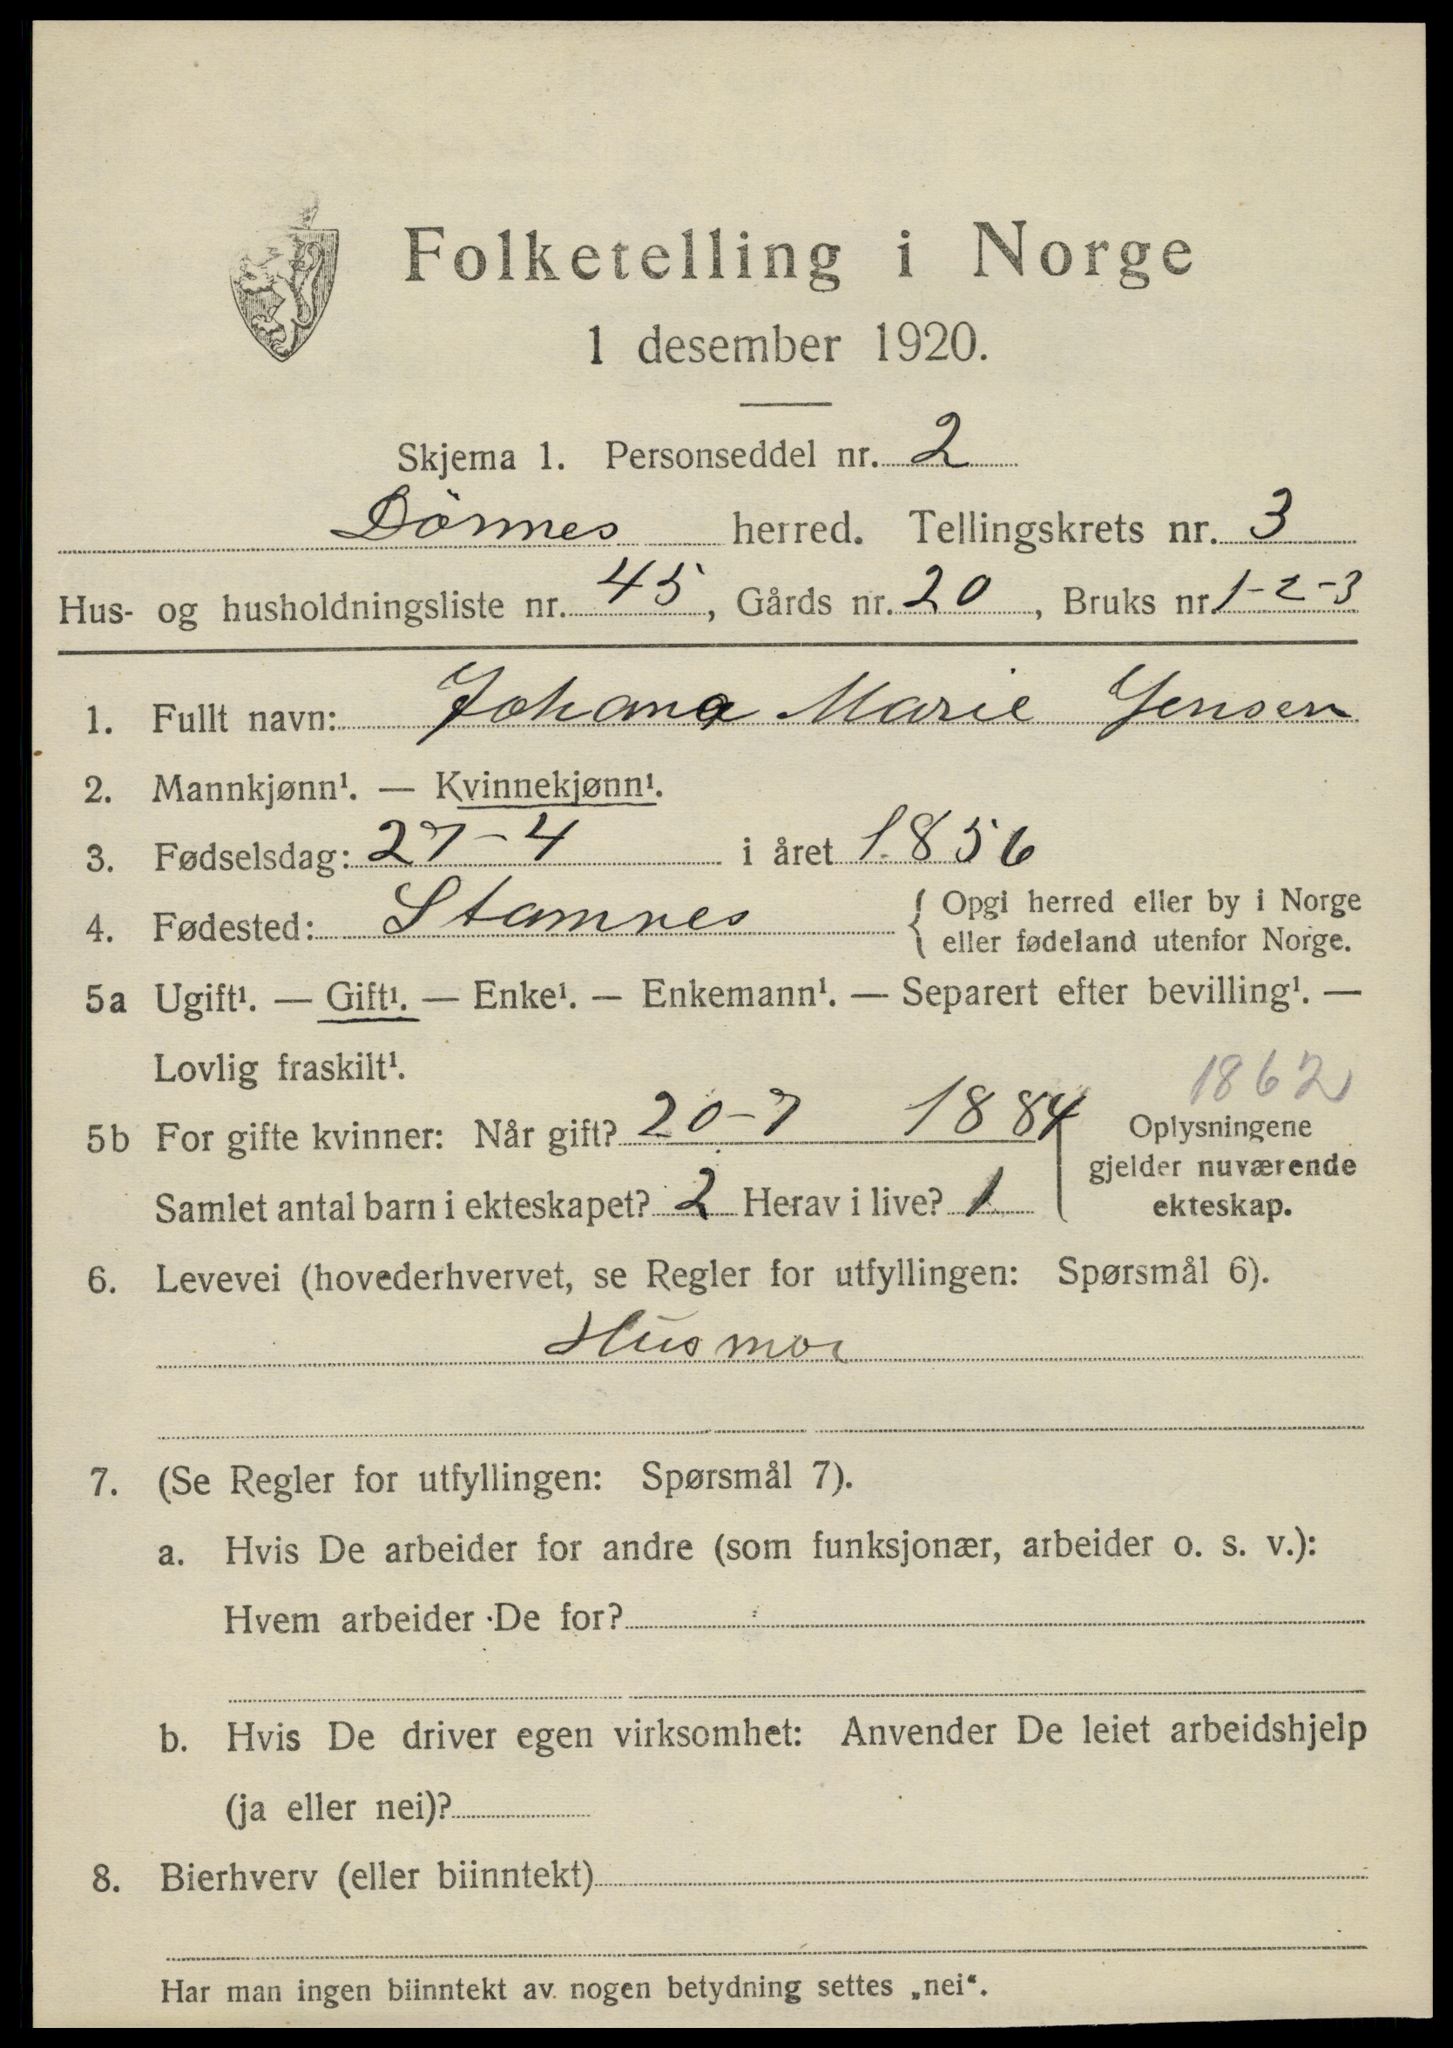 Folketelling i Norge
1 desember 1920.
Skjema 1. Personseddel nr. 2
Dönnes herred. Tellingskrets nr. 3
Hus- og husholdningsliste nr. 45, Gårds nr. 20, Bruks nr. 1-2-3
1. Fullt navn: Johana Marie Jensen
2. Mannkjønn¹. — Kvinnekjønn¹.
3. Fødselsdag: 27-4 i året 1856
4. Fødested: Stamnes { Opgi herred eller by i Norge
eller fødeland utenfor Norge.
5a Ugift¹. — Gift¹. — Enke¹. — Enkemann¹. — Separert efter bevilling¹. —
Lovlig fraskilt¹.
1862
5b For gifte kvinner: Når gift? 20-7 1884
Samlet antal barn i ekteskapet? 2 Herav i live? 1
Oplysningene
gjelder nuværende
ekteskap.
6. Levevei (hovederhvervet, se Regler for utfyllingen: Spørsmål 6).
Husmor
7. (Se Regler for utfyllingen: Spørsmål 7).
a. Hvis De arbeider for andre (som funksjonær, arbeider o. s. v.):
Hvem arbeider De for?
b. Hvis De driver egen virksomhet: Anvender De leiet arbeidshjelp
(ja eller nei)?
8. Bierhverv (eller biinntekt)
Har man ingen biinntekt av nogen betydning settes „nei“.